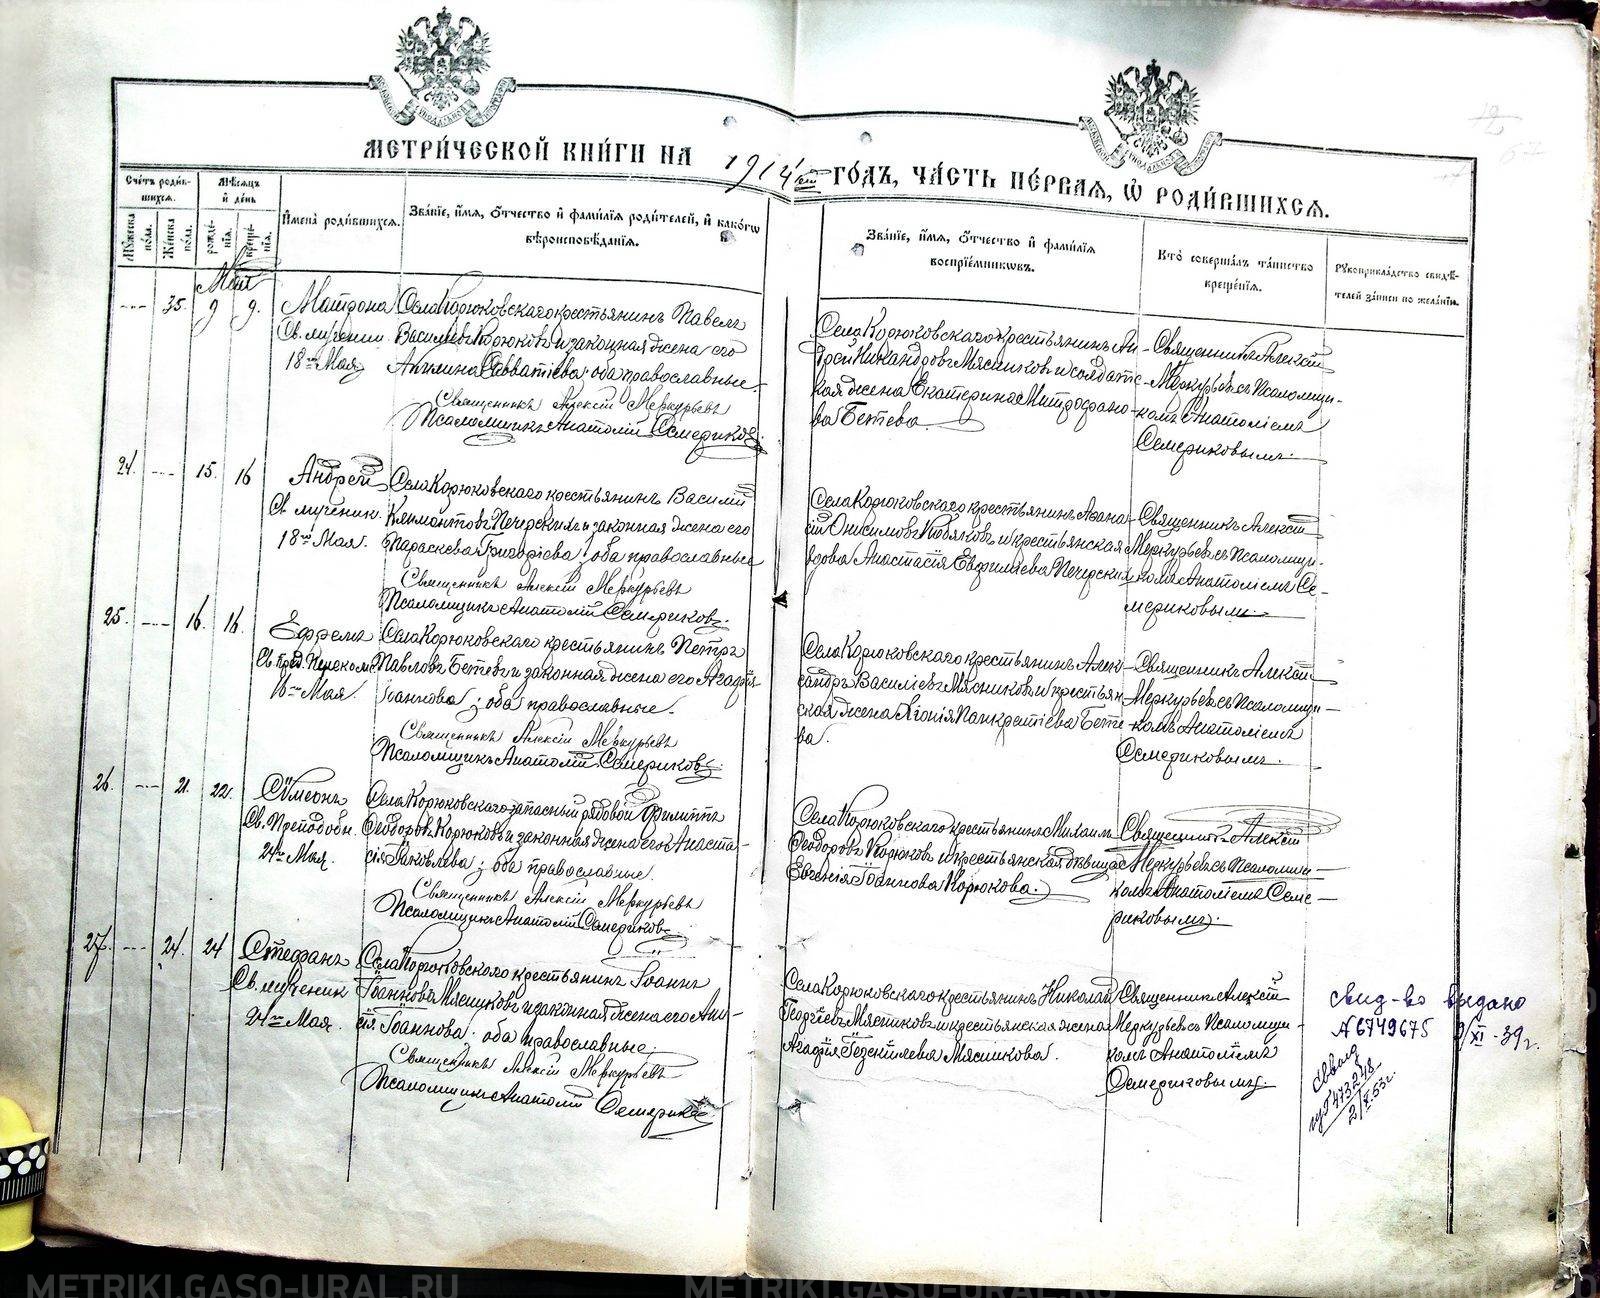 МЕТРИЧЕСКОЙ КНИГИ НА 1914ый ГОДЪ, ЧАСТЬ ПЕРВАЯ, Ѡ РОДИВШИХСЯ.
Счетъ родив-
шихся.
Мѣсяцъ
и день
Имена родившихся.
Званіе, имя, отчество и фамилія родителей, и какогѡ
вѣроисповѣданія.
Званіе, имя, отчество и фамилія
воспріемниковъ.
Кто совершалъ таинство
крещенія.
Рукоприкладство свидѣ-
телей записи по желанію.
Мужеска
пола.
Женска
пола.
рожде-
нія.
креще-
нія.
Май
35. 9 9.
Матрона
Св. мученицы
18го Мая
Села Корюковскаго крестьянинъ Павелъ
Васильевъ Корюковъ и законная жена его
Савватіева; оба православные.
Священникъ Алексій Меркурьевъ
Псаломщикъ Анатолій Семериковъ.
Села Корюковскаго крестьянинъ Ан-
дрей Никандровъ Мясниковъ и солдатс-
кая жена Екатерина Митрофано-
ва Бетева.
Священникъ Алексій
Меркурьевъ съ Псаломщи-
комъ Анатоліемъ
Семериковымъ.
24. 15. 16
Андрей
Св. мученик.
18го Мая.
Села Корюковскаго крестьянинъ Василій
Климонтовъ Печерскихъ и законная жена его
Параскева Григоріева; оба православные
Священникъ Алексій Меркурьевъ
Псаломщикъ Анатолій Семериковъ.
Села Корюковскаго крестьянинъ Афана-
сій Онисимовъ Кобяковъ и крестьянская
вдова Анастасія Печерских
Священникъ Алексій
Меркурьевъ съ Псаломщи-
комъ Анатоліемъ Се-
мериковымъ.
25. 16. 16.
Ефремъ
Св. Прп. Перекомс
16го Мая.
Села Корюковскаго крестьянинъ Петръ
Павловъ Бетевъ и законная жена его Агафія
Іоаннова; оба православные.
Священникъ Алексій Меркурьевъ
Псаломщикъ Анатолій Семериковъ
Села Корюковскаго крестьянинъ Алек-
сандръ Василіевъ Мясниковъ и крестьян
ская жена Панкратіева Бете-
ва.
Священникъ Алексій
Меркурьевъ съ Псаломщи-
комъ Анатоліемъ
Семериковымъ.
26. 21. 22.
Сѵмеонъ
Св. Преподобн.
24го Мая.
Села Корюковскаго запасный рядовой Филиппъ
Ѳеодоровъ Корюковъ и законная жена его Анаста-
сія Яковлева; оба православные.
Священникъ Алексій Меркурьевъ
Псаломщикъ Анатолій Семериковъ
Села Корюковскаго крестьянинъ Михаилъ
Ѳеодоровъ Корюковъ и крестьянская дѣвица
Евгенія Іоаннова Корюкова.
Священникъ Алексій
Меркурьевъ съ Псаломщи-
комъ Анатоліемъ Семе-
риковымъ.
27. 24. 24
Стефанъ
Св. мученик
24го Мая.
Села Корюковскаго крестьянинъ Іоаннъ
Іоанновъ Мясниковъ и законная жена его Ани-
сія Іоаннова; оба православные.
Священникъ Алексій Меркурьевъ
Псаломщикъ Анатолій Семериковъ
Села Корюковскаго крестьянинъ Николай
Георгіевъ Мясниковъ и крестьянская жена
Агафія Іезекіилева Мясникова.
Священникъ Алексій
Меркурьевъ съ Псаломщи-
комъ Анатоліемъ
Семериковымъ.
свид-во выдано
№6749675 9/XI-39г.
473248
2/X.53г.
METRIKI.GASO-URAL.RU